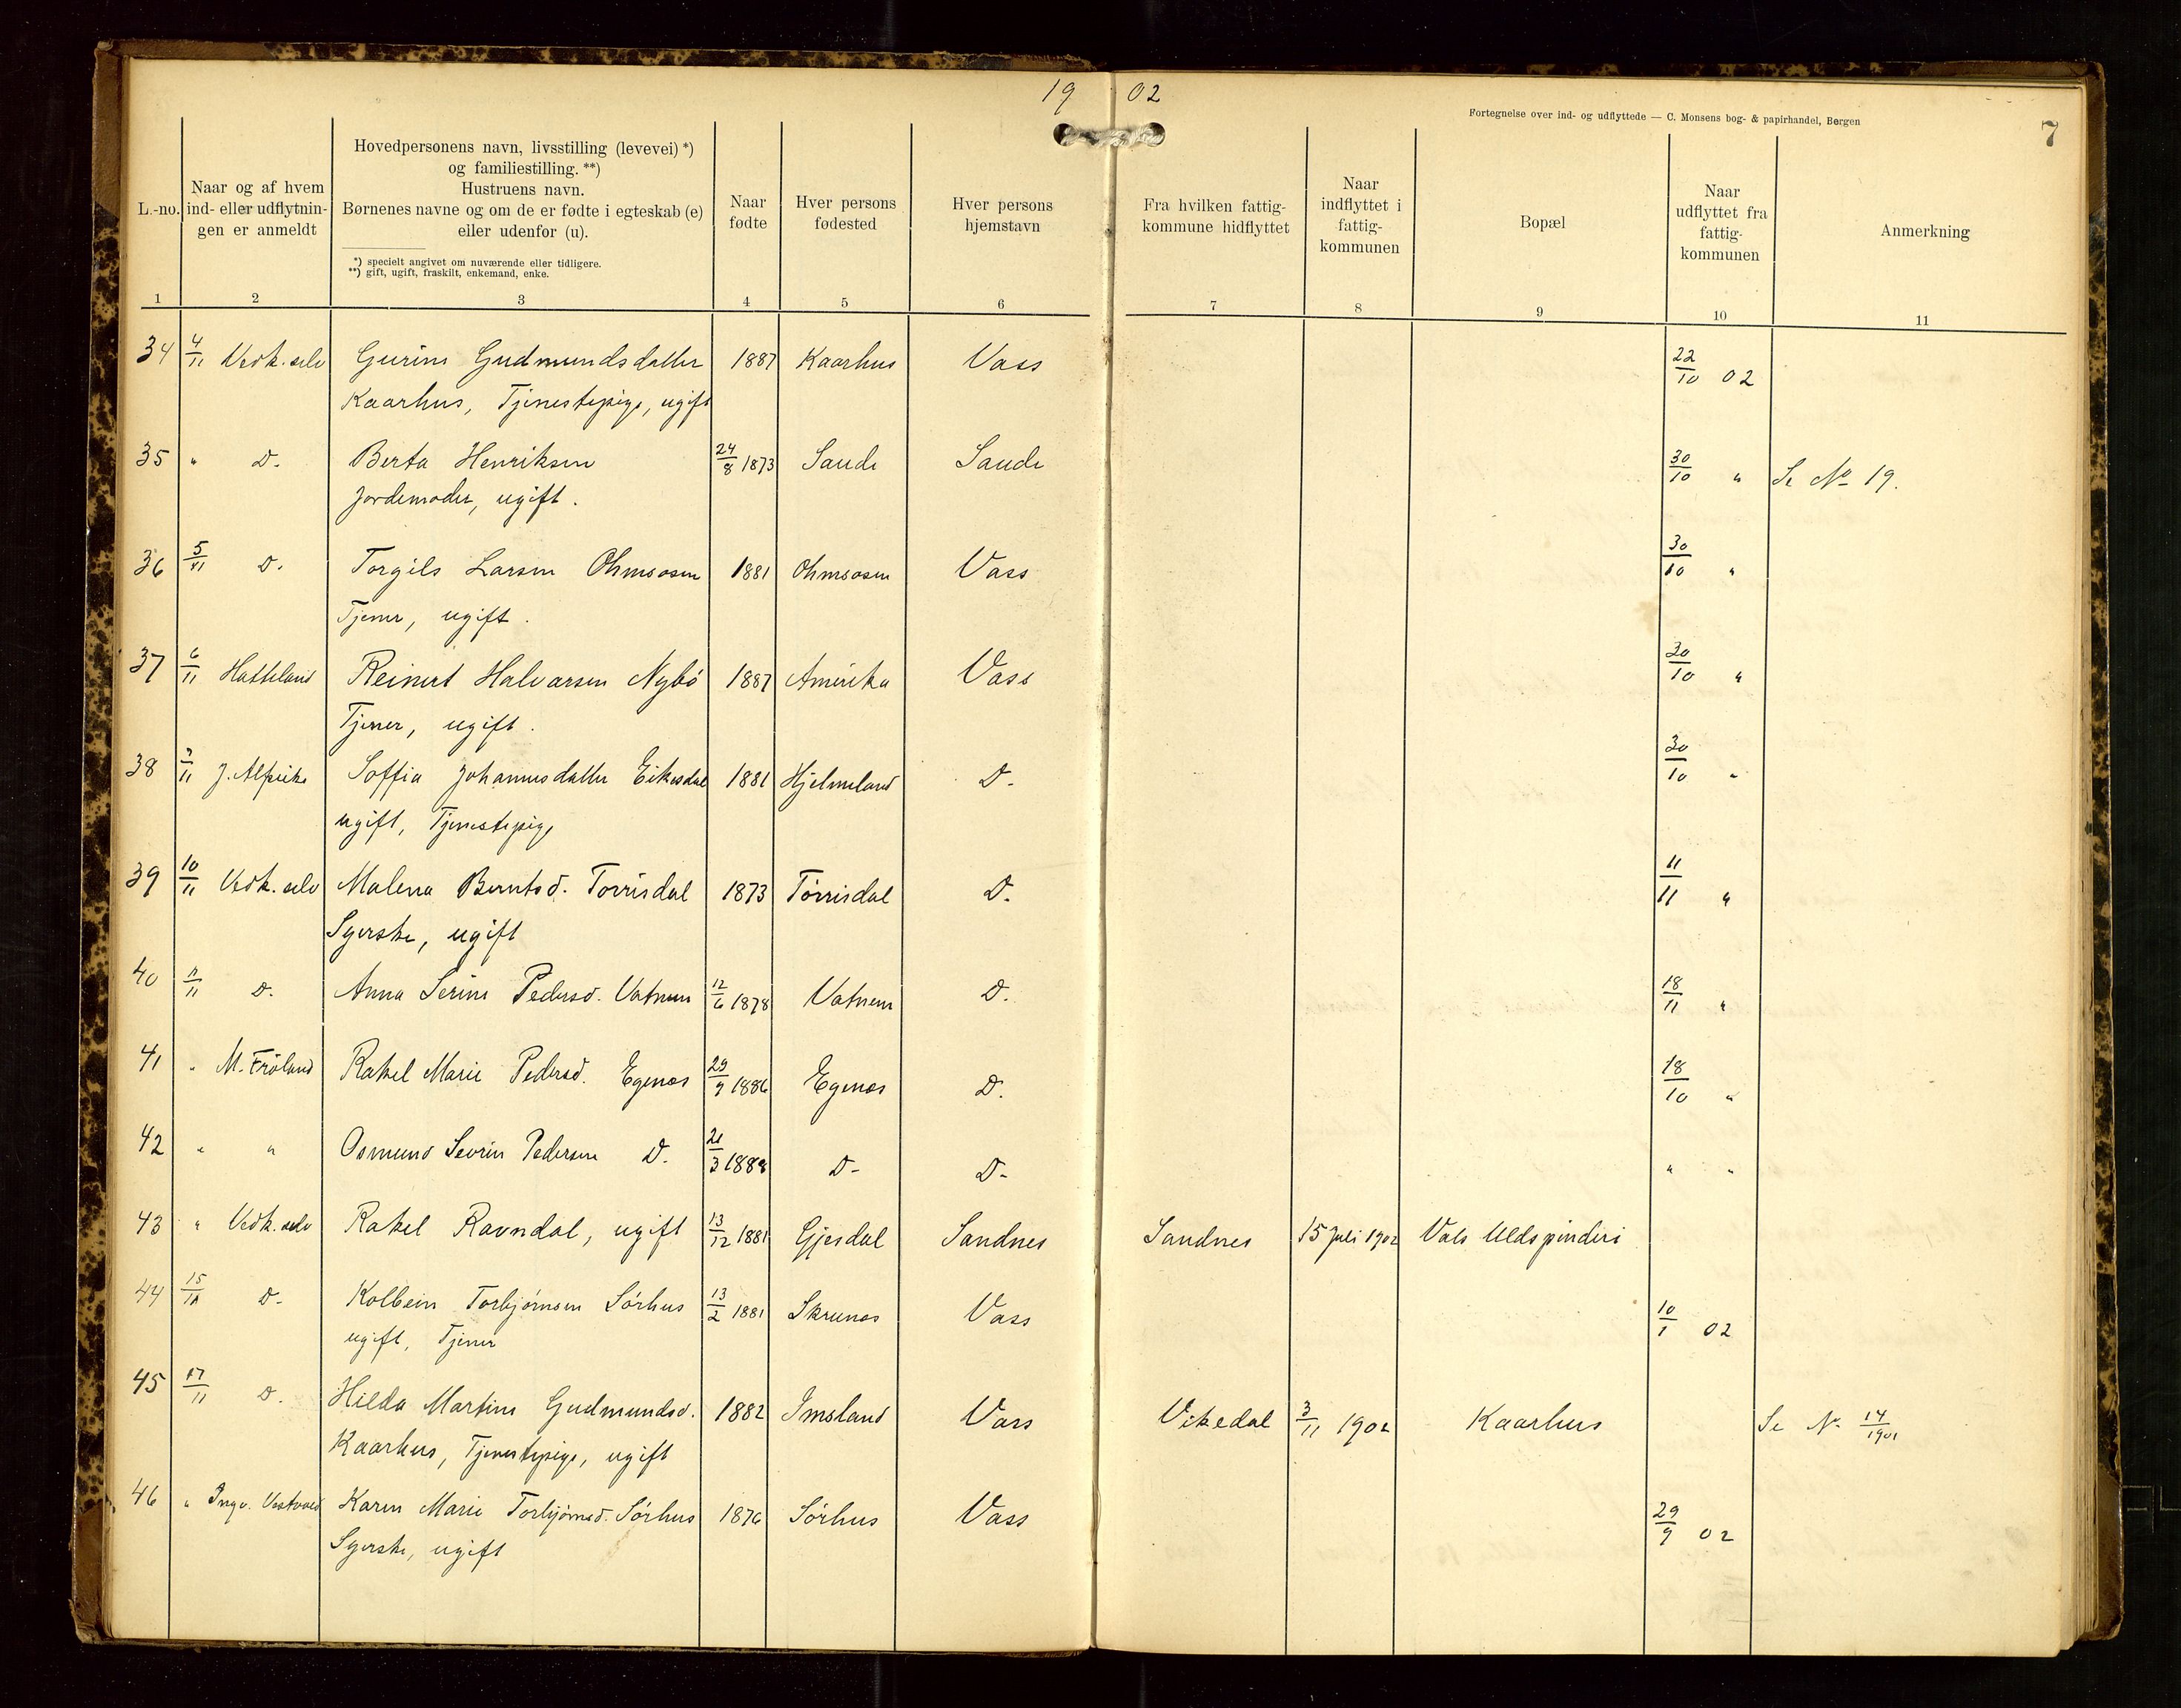 19 02
Fortegnelse over ind- og udflyttede — C. Monsens bog- & papirhandel, Bergen
7
L.-no.
Naar og af hvem
ind- eller udflytnin-
gen er anmeldt
Hovedpersonens navn, livsstilling (levevei) *)
og familiestilling. **)
Hustruens navn.
Børnenes navne og om de er fødte i egteskab (e)
eller udenfor (u).
*) specielt angivet om nuværende eller tidligere.
**) gift, ugift, fraskilt, enkemand, enke.
Naar
fødte
Hver persons
fødested
Hver persons
hjemstavn
Fra hvilken fattig-
kommune hidflyttet
Naar
indflyttet i
fattig-
kommunen
Bopæl
Naar
udflyttet fra
fattig-
kommunen
Anmerkning
1 2 3 4 5 6 7 8 9 10 11
34 4/11 Vedk. selv Gurine Gudmundsdatter 1887 Kaarhus Vass 22/10 02
Kaarhus, Tjenestepige, ugift
35 " D. Berta Henriksen 24/8 1873 Saude Saude 30/10 " Se No 19.
Jordemoder, ugift.
36 5/11 D. Torgils Larsen Ohmsosen 1881 Ohmsosen Vass 30/10 "
Tjener, ugift.
37 6/11 Hatteland Reinert Halvarsen Nybö 1887 Amerika Vass 30/10 "
Tjener, ugift.
38 /11 J. Alfseike Soffia Johannesdatter Eikesdal 1881 Hjelmeland D. 30/10 "
ugift, Tjenestepige
39 10/11 Vedk. selv Malena Berntsd. Torrisdal 1873 Torrisdal D. 11/11 "
Syerske, ugift
40 11/11 D. Anna Serine Pedersd. Vatnem 12/6 1878 Vatnem D. 18/11 "
41 " M. Fröland Rakel Marie Pedersd. Egenæs 29/9 1886 Egenæs D. 18/10 "
42 " " Osmund Sevrin Pedersen D. 21/3 1888 D- D- " "
43 " Vedk. selv Rakel Ravndal, ugift 13/12 1881 Gjesdal Sandnes Sandnes 15 Juli 1902 Vats Uldspinderi
44 15/11 D. Kolbein Torbjörnsen Sörhus 13/2 1881 Skrunes Vass 10/1 02
ugift, Tjener
45 17/11 D. Hilda Martine Gudmundsd. 1882 Imsland Vass Vikedal 3/11 1902 Kaarhus Se No. 14/1901
Kaarhus, Tjenestepige, ugift
46 " Ingv. Vestvold Karen Marie Torbjörnsd. Sörhus 1876 Sörhus Vass 29/9 02
Syerske, ugift